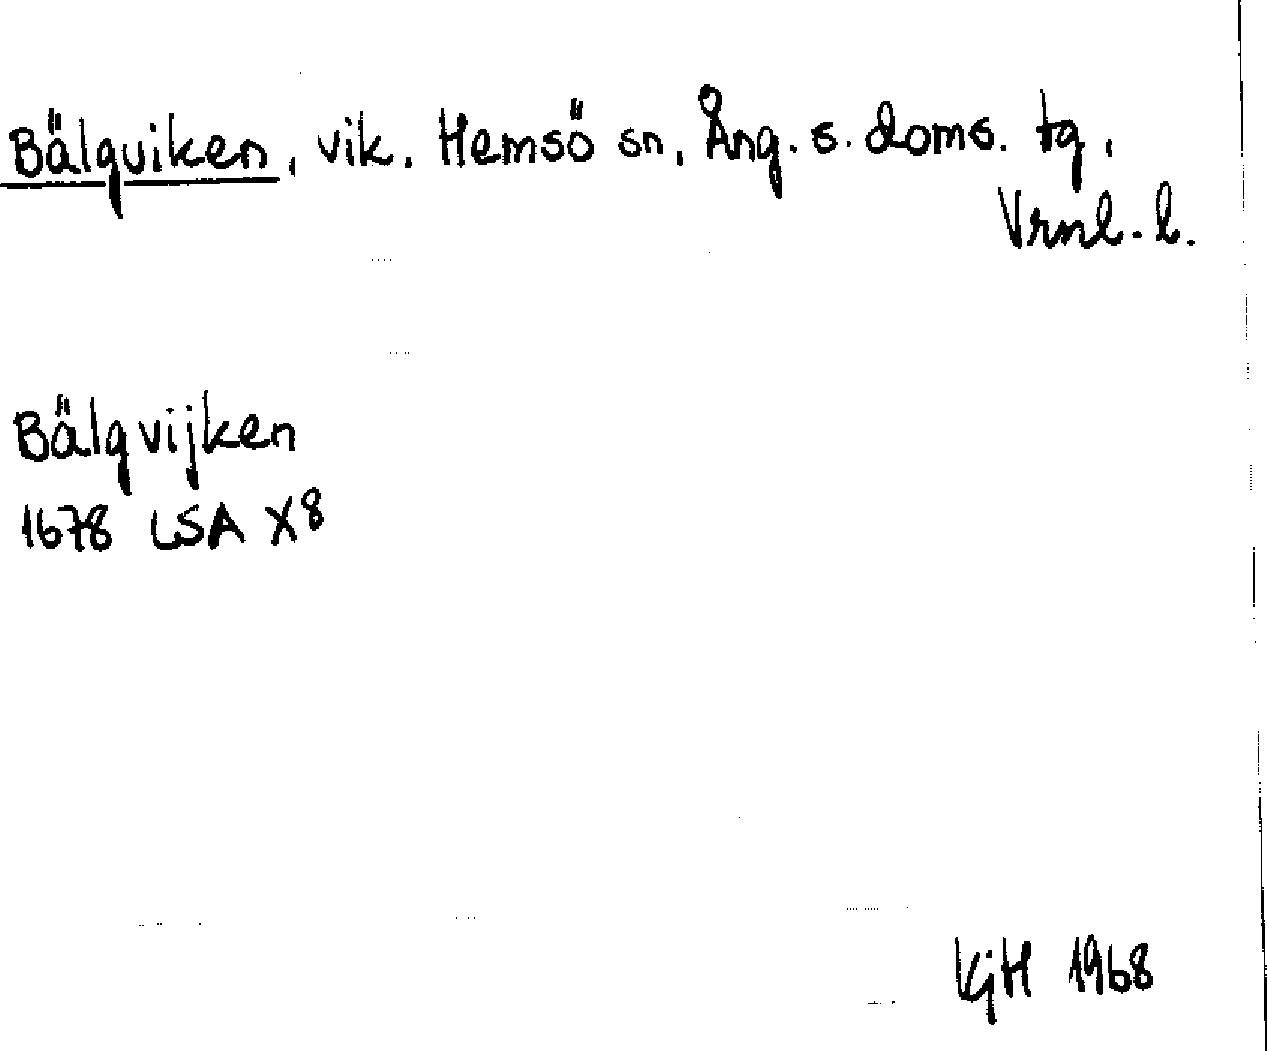 Bälgviken, vik. Hemsö sn, Ång. s. doms. tg,
Vrnl. l.
Bälgvijken
1678 LSA X8
KjH 1968